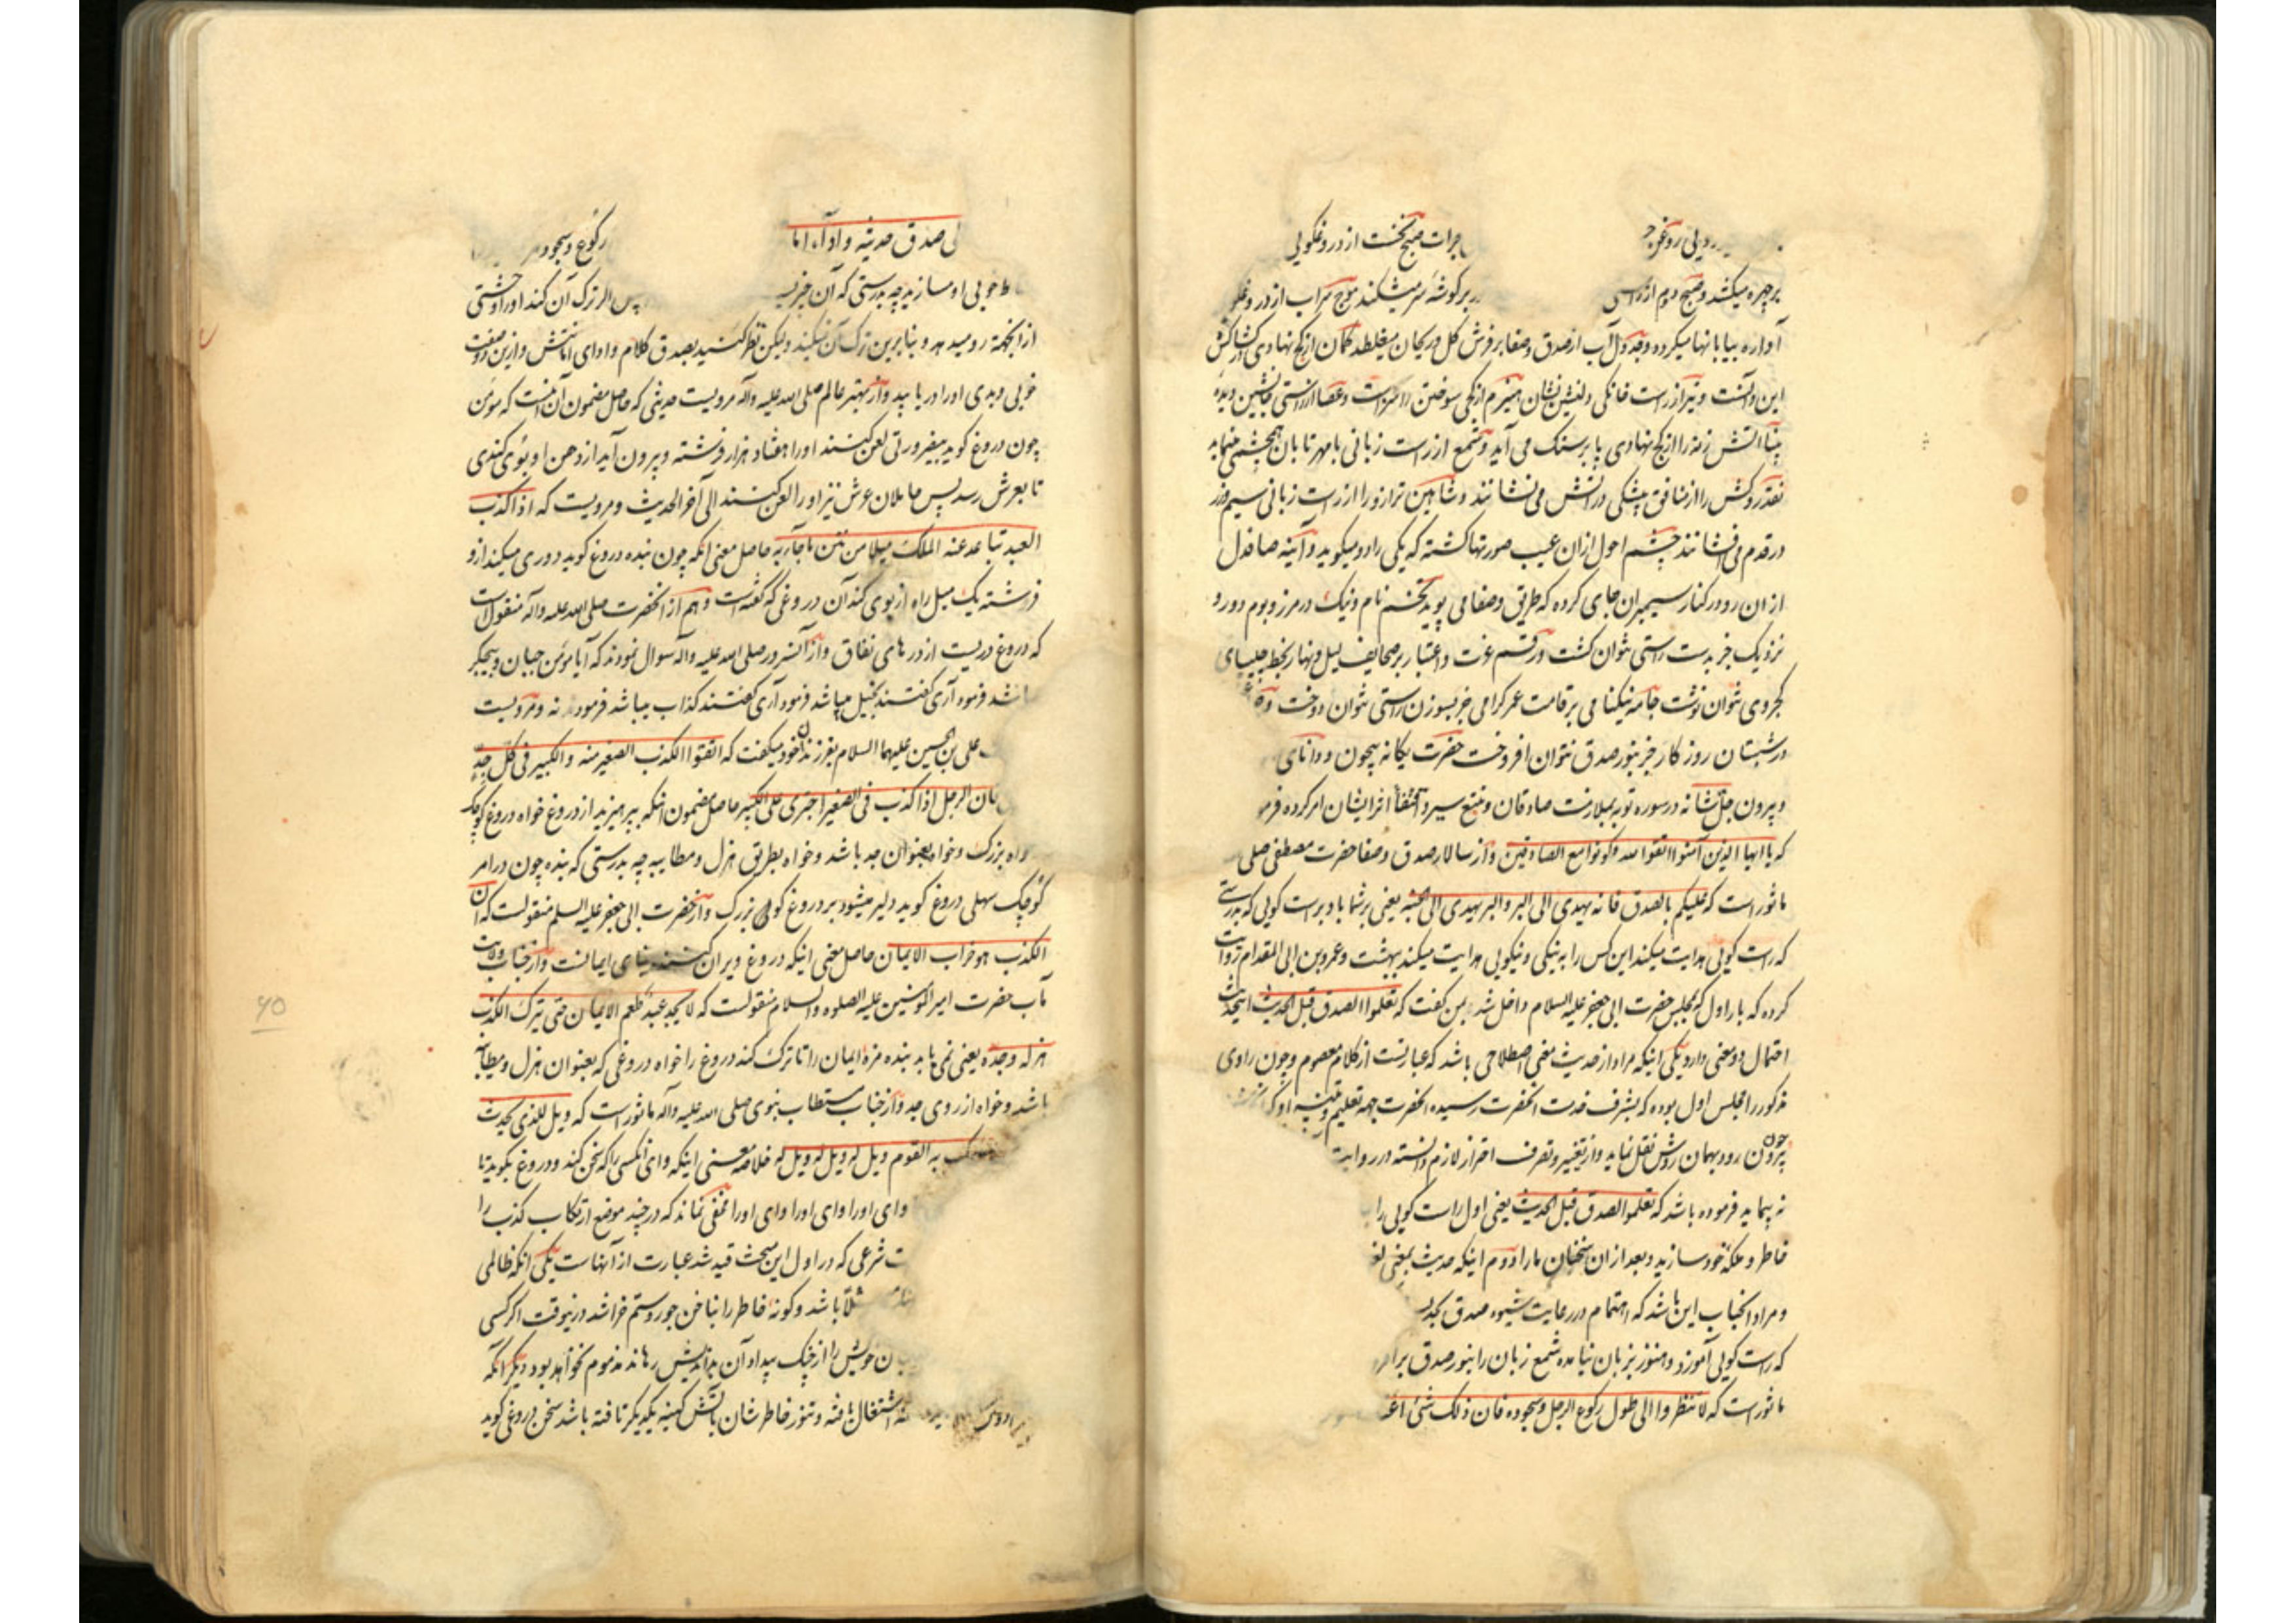 جرات صبح نخست از دروغکویی
برچهره میکشد و صبح دوم از راستی بر کوشه سر میشکند موج سراب از دروغ
آواره بیابانها میکردد و جدول آب از صدق و صفا بر فرش کل و ریحان میغلطد کمان از کج نهادی در کشاکش
این و آنست و تیر از راست خانکی دلنشین نشان هیزم از کجی سوختن را سزاست و عصا از راستی
آتش زنه را از کج نهادی پا بر سنک می آید و شمع از راست زبانی با مهر تابان همچشمی مینماید
نقد روکش را از منافق پیشکی در آتش می نشانند و شاهین ترازو را از راست زبانی سیم و زر
در قدم می افشانند چشم احول از ان عیب صورتها کشته که یکی را دو میکوید و آینه صافدل
از ان رو در کنار سیمبران جای کرده که طریق صفا می پوید تخم نام نیک در مرز و بوم دور و
نزدیک جز بدست راستی نتوان کشت و رقم عزت و اعتبار بر صحایف لیل و نهار بخط چلیپای
کجروی نتوان نوشت جامه نیکنامی بر قامت عمر کرامی جز بسوزن راستی نتوان دوخت و
در شبستان روزکار جز بنور صدق نتوان افروخت حضرت یکانه بیچون و دانای
و بیرون جل شانه در سوره توبه بملازمت صادقان و تتبع سیر و اقتفا اثر ایشان امر کرده
که یا ایها الذین آمنوا اتقوا الله و کونوا مع الصادقین و از سالار صدق و صفا حضرت مصطفی صلی
ماثور است که علیکم بالصدق فانه یهدی الی البر و البر یهدی الی الجنه یعنی بر شما باد براست کویی که بدرستی
که راست کویی هدایت میکند این کس را به نیکی و نیکویی هدایت میکند ببهشت و عمرو بن ابی المقدام روایت
کرده که بار اول که بمجلس حضرت ابی جعفر علیه السلام داخل شدم بمن کفت که تعلموا الصدق قبل الحدیث این حدیث
احتمال دو معنی دارد یکی اینکه مراد از حدیث معنی اصطلاحی باشد که عبارتست از کلام معصوم و چون راوی
مذکور را مجلس اول بوده که بشرف خدمت آنحضرت رسیده آنحضرت جهة تعلیم و تنبیه او
چون بیرون رود بهمان روش نقل نماید و از تغییر و تصرف احتراز لازم دانسته در روایت
نه پیماید فرموده باشد که تعلموا الصدق قبل الحدیث یعنی اول راست کویی را
خاطر و ملکه خود سازید و بعد از ان سخنان ما را دوم اینکه حدیث بمعنی
و مراد آنجناب این باشد که اهتمام در رعایت شیوه صدق
که راست کویی آموزد و هنوز بزبان نیامده شمع زبان را بنور صدق
ماثور است که لا تنظروا الی طول رکوع الرجل و سجوده فان ذلک شئ
الی صدق حدیثه و اداء رکوع و سجود
خوبی او مسازید چه بدرستی که آن پس اگر ترک آن کند او را وحشتی
از انجهة رو میدهد و بنابرین ترک آن نمیکند ولیکن نظر کنید بصدق کلام و ادای امانتش و ازین دو صفت
خوبی و بدی او را دریابید و از مهتر عالم صلی الله علیه و آله مرویست حدیثی که حاصل مضمون آن اینست که مؤمن
چون دروغ کوید بیضرورتی لعن کنند او را هفتاد هزار فرشته و بیرون آید از دهن او بوی کندی
تا بعرش رسد پس حاملان عرش نیز او را لعن کنند الی آخر الحدیث و مرویست که اذا کذب
العبد تباعد عنه الملک میلا من نتن ما جاء به حاصل معنی آنکه چون بنده دروغ کوید دوری میکند ازو
فرشته یک میل راه از بوی کند آن دروغی که کفته است و هم از آنحضرت صلی الله علیه و آله منقولست
که دروغ دریست از درهای نفاق و از آنسرور صلی الله علیه و آله سوال نمودند که آیا مؤمن جبان و بیجکر
باشد فرمود آری کفتند بخیل میباشد فرمود آری کفتند کذاب میباشد فرمود نه و مرویست
علی بن الحسین علیهما السلام بفرزندان خود میکفت که اتقوا الکذب الصغیر منه و الکبیر فی کل جد
فان الرجل اذا کذب فی الصغیر اجتری علی الکبیر حاصل مضمون آنکه بپرهیزید از دروغ خواه دروغ کوچک
خواه بزرک و خواه بعنوان جد باشد و خواه بطریق هزل و مطایبه چه بدرستی که بنده چون در امر
کوچک سهلی دروغ کوید دلیر میشود بر دروغ کویی بزرک و از حضرت ابی جعفر علیه السلم منقولست که ان
الکذب هو خراب الایمان حاصل معنی اینکه دروغ ویران کننده بنای ایمانست و از جناب ولایت
مآب حضرت امیر المومنین علیه الصلوه و السلام منقولست که لا یجد عبد طعم الایمان حتی یترک الکذب
هزله و جده یعنی نمی یابد بنده مزه ایمان را تا ترک کند دروغ را خواه دروغی که بعنوان هزل و مطایبه
باشد و خواه از روی جد و از جناب مستطاب نبوی صلی الله علیه و آله ماثور است که ویل للذی یحدث
به القوم ویل له ویل له ویل له خلاصه معنی اینکه وای آنکسی را که سخن کند و دروغ بکوید تا
وای او را وای او را وای او را مخفی نماند که در چند موضع ارتکاب کذب را
شرعی که در اول این مبحث قید شد عبارت از آنهاست یکی آنکه ظالمی
باشد و کونه خاطر را بناخن جور و ستم خراشد درینوقت اکر کسی
خویش را از چنک بیداد آن بداندیش رهاند مذموم نخواهد بود دیکر آنکه
اشتغال یافته و تنور خاطرشان بآتش کینه یکدیکر تافته باشد سخن دروغی کوید